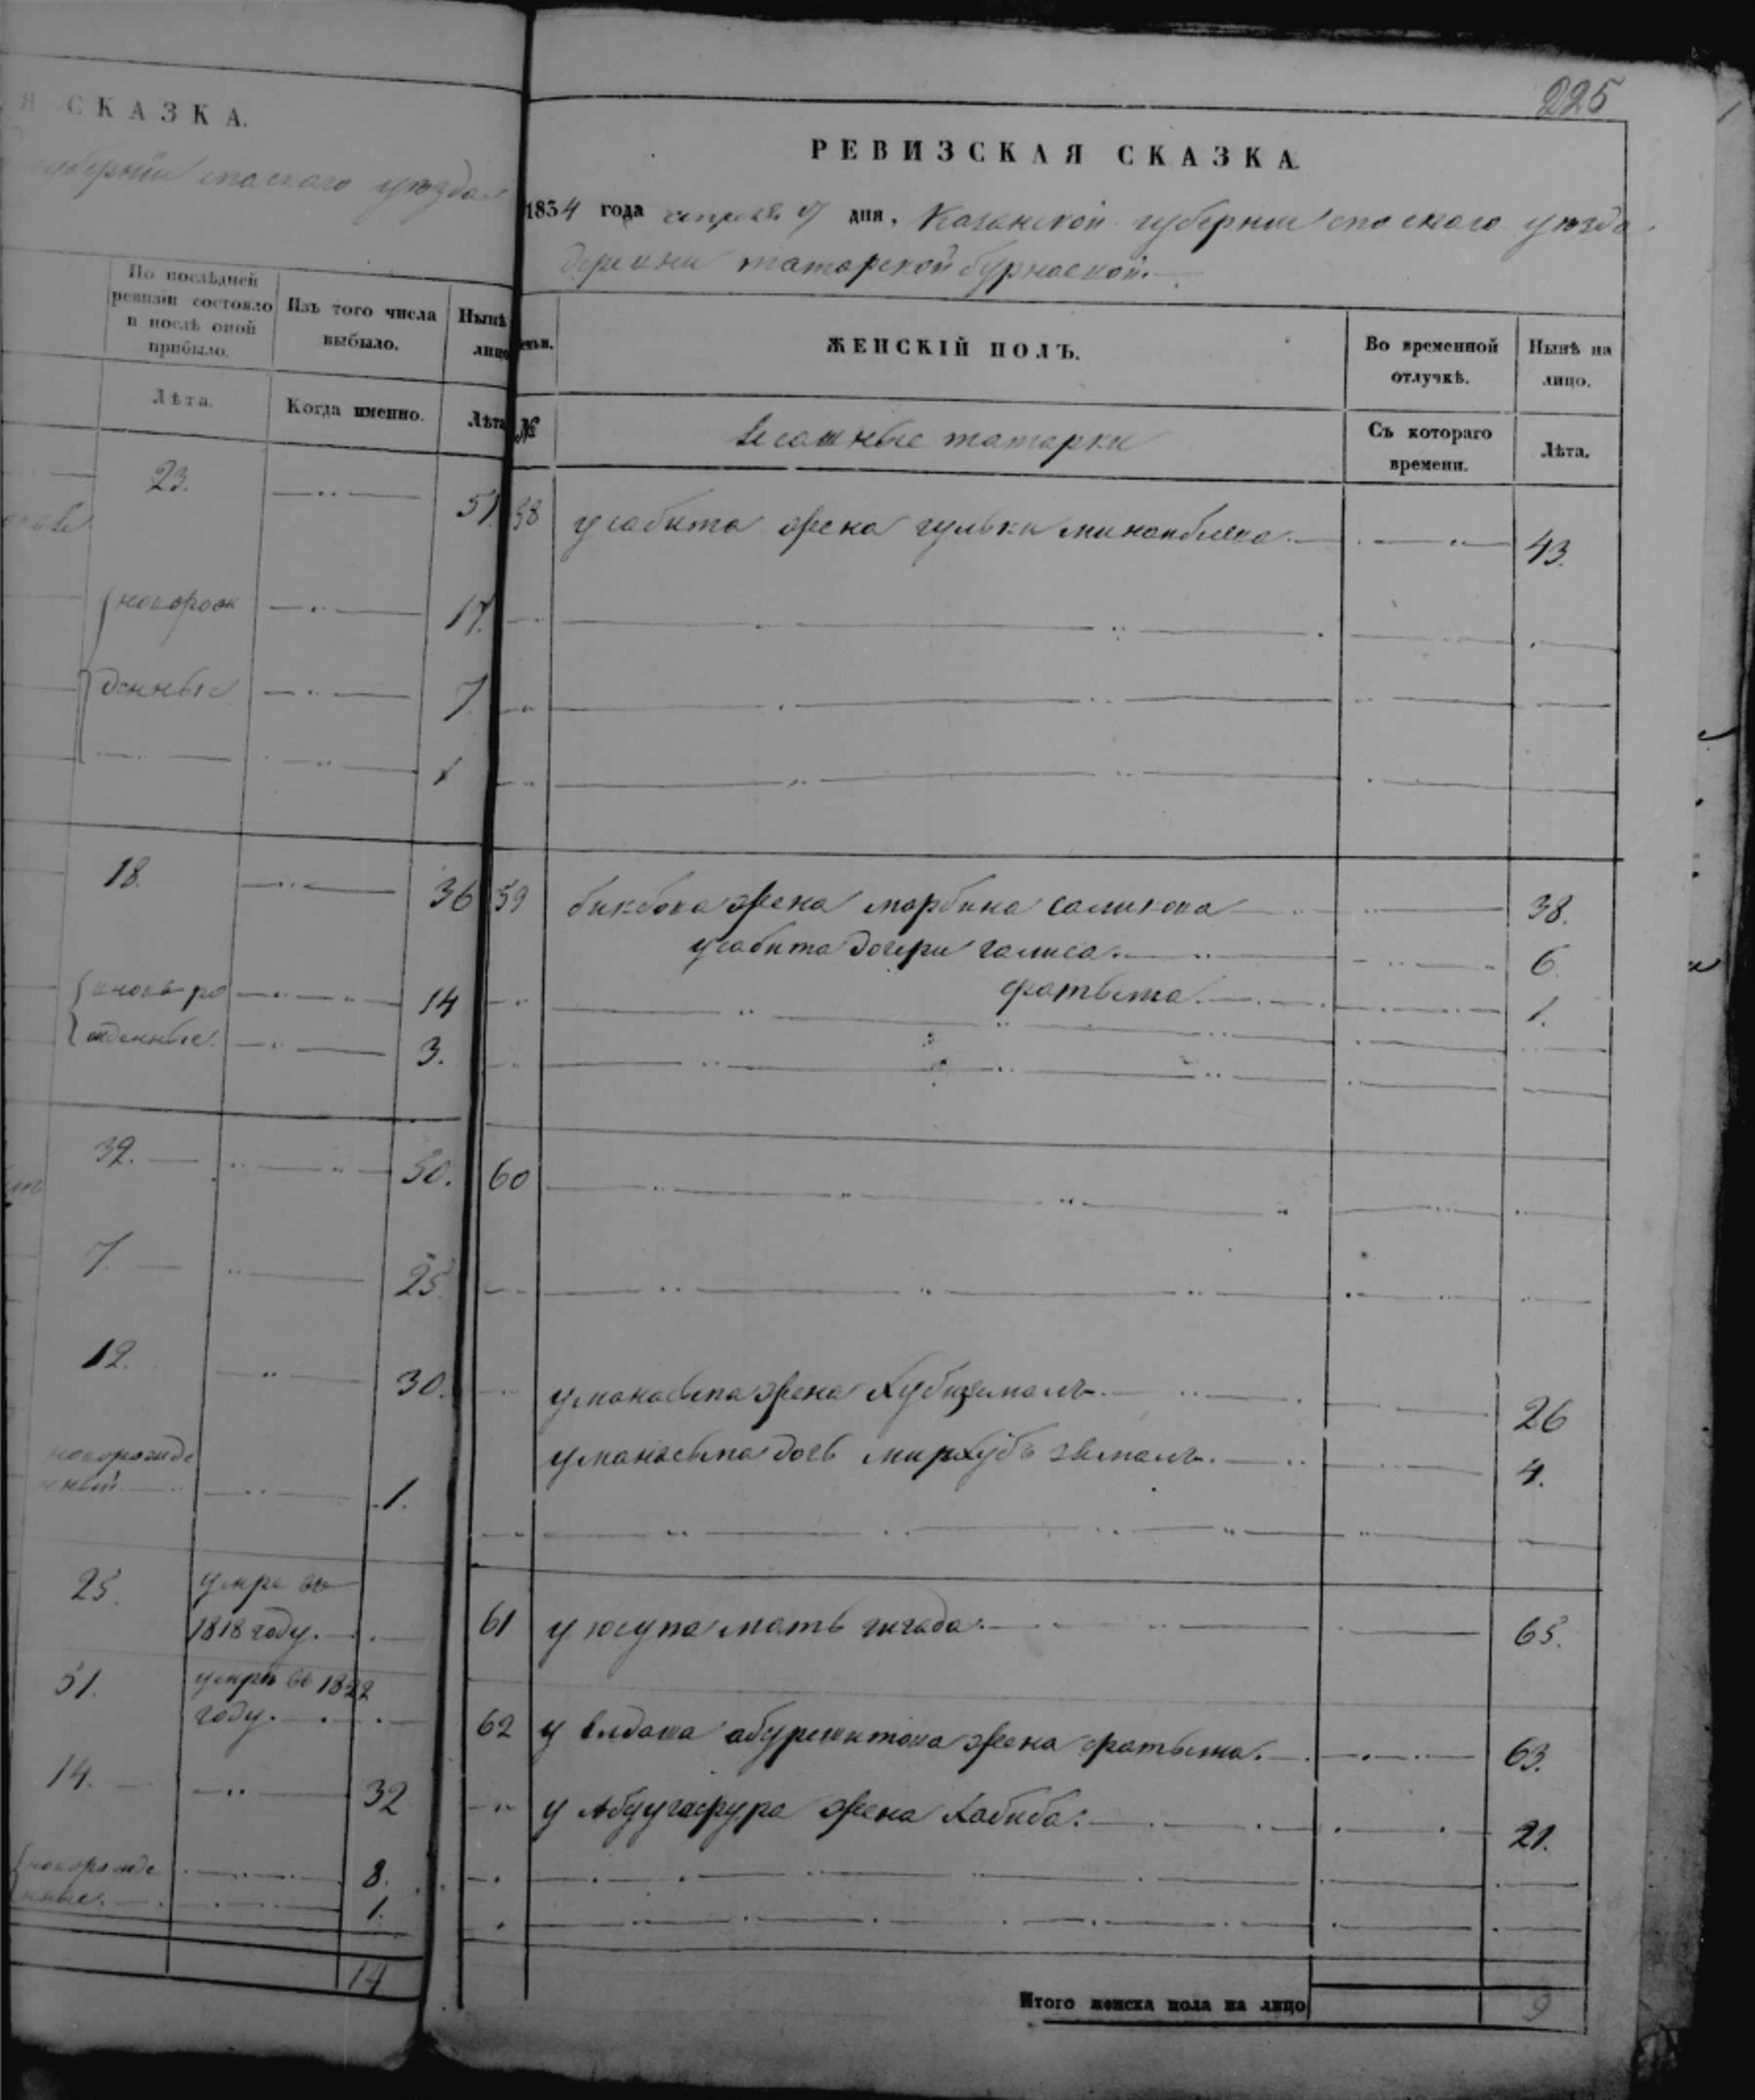 Я СКАЗКА.
губернии спаского уезда
По послѣдней ревизіи состояло и послѣ оной прибыло.
Изъ того числа выбыло.
Нынѣ лицо
Лѣта.
Когда именно.
Лѣта
23.
51.
новорож
17.
денные
7.
1
18.
36
вновь ро
14
жденные.
3.
32.
50.
7.
25.
12.
30.
новорожде
нный
1.
25.
умре въ
1818 году.
51.
умре въ 1822
году.
14.
32
новорожде
8.
нные.
1.
14
225
РЕВИЗСКАЯ СКАЗКА
1834 года апреля 17 дня, Казанской губернии спаского уезда
деревни татарской бурнаевой
№
ЖЕНСКІЙ ПОЛЪ.
Во временной отлучкѣ.
Нынѣ на лицо.
ясашные татарки
Съ котораго времени.
Лѣта.
58 у сабита жена гульки минанбаева 43.
59 бикбова жена марбина салихова 38.
у сабита дочери галиса. 6
фатыма. 1.
60
у манасыпа жена Хубизямалъ 26
у манасыпа дочь мирхубъ зямалъ. 4.
61 у юсупа мать 65.
62 у абурешитова жена фатыма. 63.
у Абдугафура жена Хабиба. 21.
Итого женска пола на лицо
9